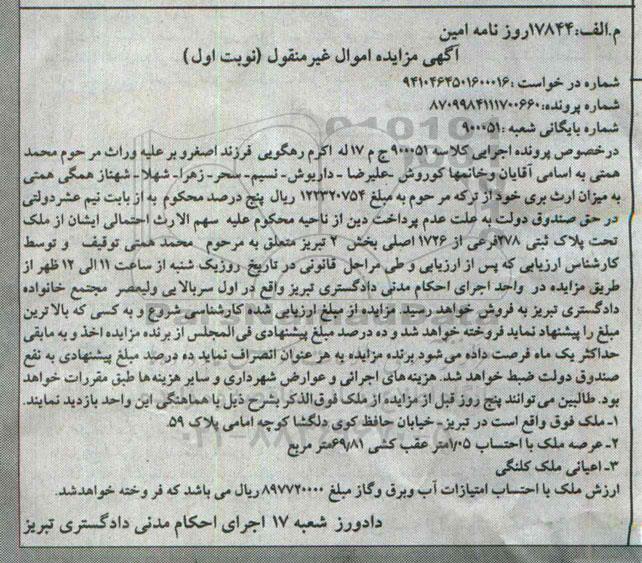 م.الف:۱۷۸۴۴روز نامه امین
آگهی مزایده اموال غیرمنقول (نوبت اول)
شماره در خواست :۹۴۱۰۴۶۴۵۰۱۶۰۰۰۱۶
شماره پرونده:۸۷۰۹۹۸۴۱۱۱۷۰۰۶۶۰
شماره بایگانی شعبه :۹۰۰۰۵۱
درخصوص پرونده اجرایی کلاسه ۹۰۰۰۵۱ ج م ۱۷ له اکرم رهگویی فرزند اصغرو بر علیه وراث مر حوم محمد
همتی به اسامی آقایان وخانمها کوروش -علیرضا - داریوش- نسیم- سحر- زهرا- شهلا- شهناز همگی همتی
به میزان ارث بری خود از ترکه مر حوم به مبلغ ۱۲۲۳۲۰۷۵۴ ریال پنج درصد محکوم به از بابت نیم عشردولتی
در حق صندوق دولت به علت عدم پرداخت دین از ناحیه محکوم علیه سهم الارث احتمالی ایشان از ملک
تحت پلاک ثبتی ۲۷۸فرعی از ۱۷۲۶ اصلی بخش ۲ تبریز متعلق به مرحوم محمد همتی توقیف و توسط
کارشناس ارزیابی که پس از ارزیابی و طی مراحل قانونی در تاریخ روزیک شنبه از ساعت ۱۱ الی ۱۲ ظهر از
طریق مزایده در واحد اجرای احکام مدنی دادگستری تبریز واقع در اول سربالایی ولیعصر مجتمع خانواده
دادگستری تبریز به فروش خواهد رسید. مزایده از مبلغ ارزیابی شده کارشناسی شروع و به کسی که بالا ترین
مبلغ را پیشنهاد نماید فروخته خواهد شد و ده درصد مبلغ پیشنهادی فی المجلس از برنده مزایده اخذ و به مابقی
حداکثر یک ماه فرصت داده می شود برنده مزایده به هر عنوان انصراف نماید ده درصد مبلغ پیشنهادی به نفع
صندوق دولت ضبط خواهد شد. هزینه‌های اجرائی و عوارض شهرداری و سایر هزینه‌ها طبق مقررات خواهد
بود. طالبین می توانند پنج روز قبل از مزایده از ملک فوق‌الذکر بشرح ذیل با هماهنگی این واحد بازدید نمایند.
۱- ملک فوق واقع است در تبریز- خیابان حافظ کوی دلگشا کوچه امامی پلاک ۵۹.
۲- عرصه ملک با احتساب ۱/۰۵متر عقب کشی ۶۹/۸۱متر مربع
۳- اعیانی ملک کلنگی
ارزش ملک با احتساب امتیازات آب وبرق وگاز مبلغ ۸۹۷۷۲۰۰۰۰ ریال می باشد که فر وخته خواهدشد.
دادورز شعبه ۱۷ اجرای احکام مدنی دادگستری تبریز